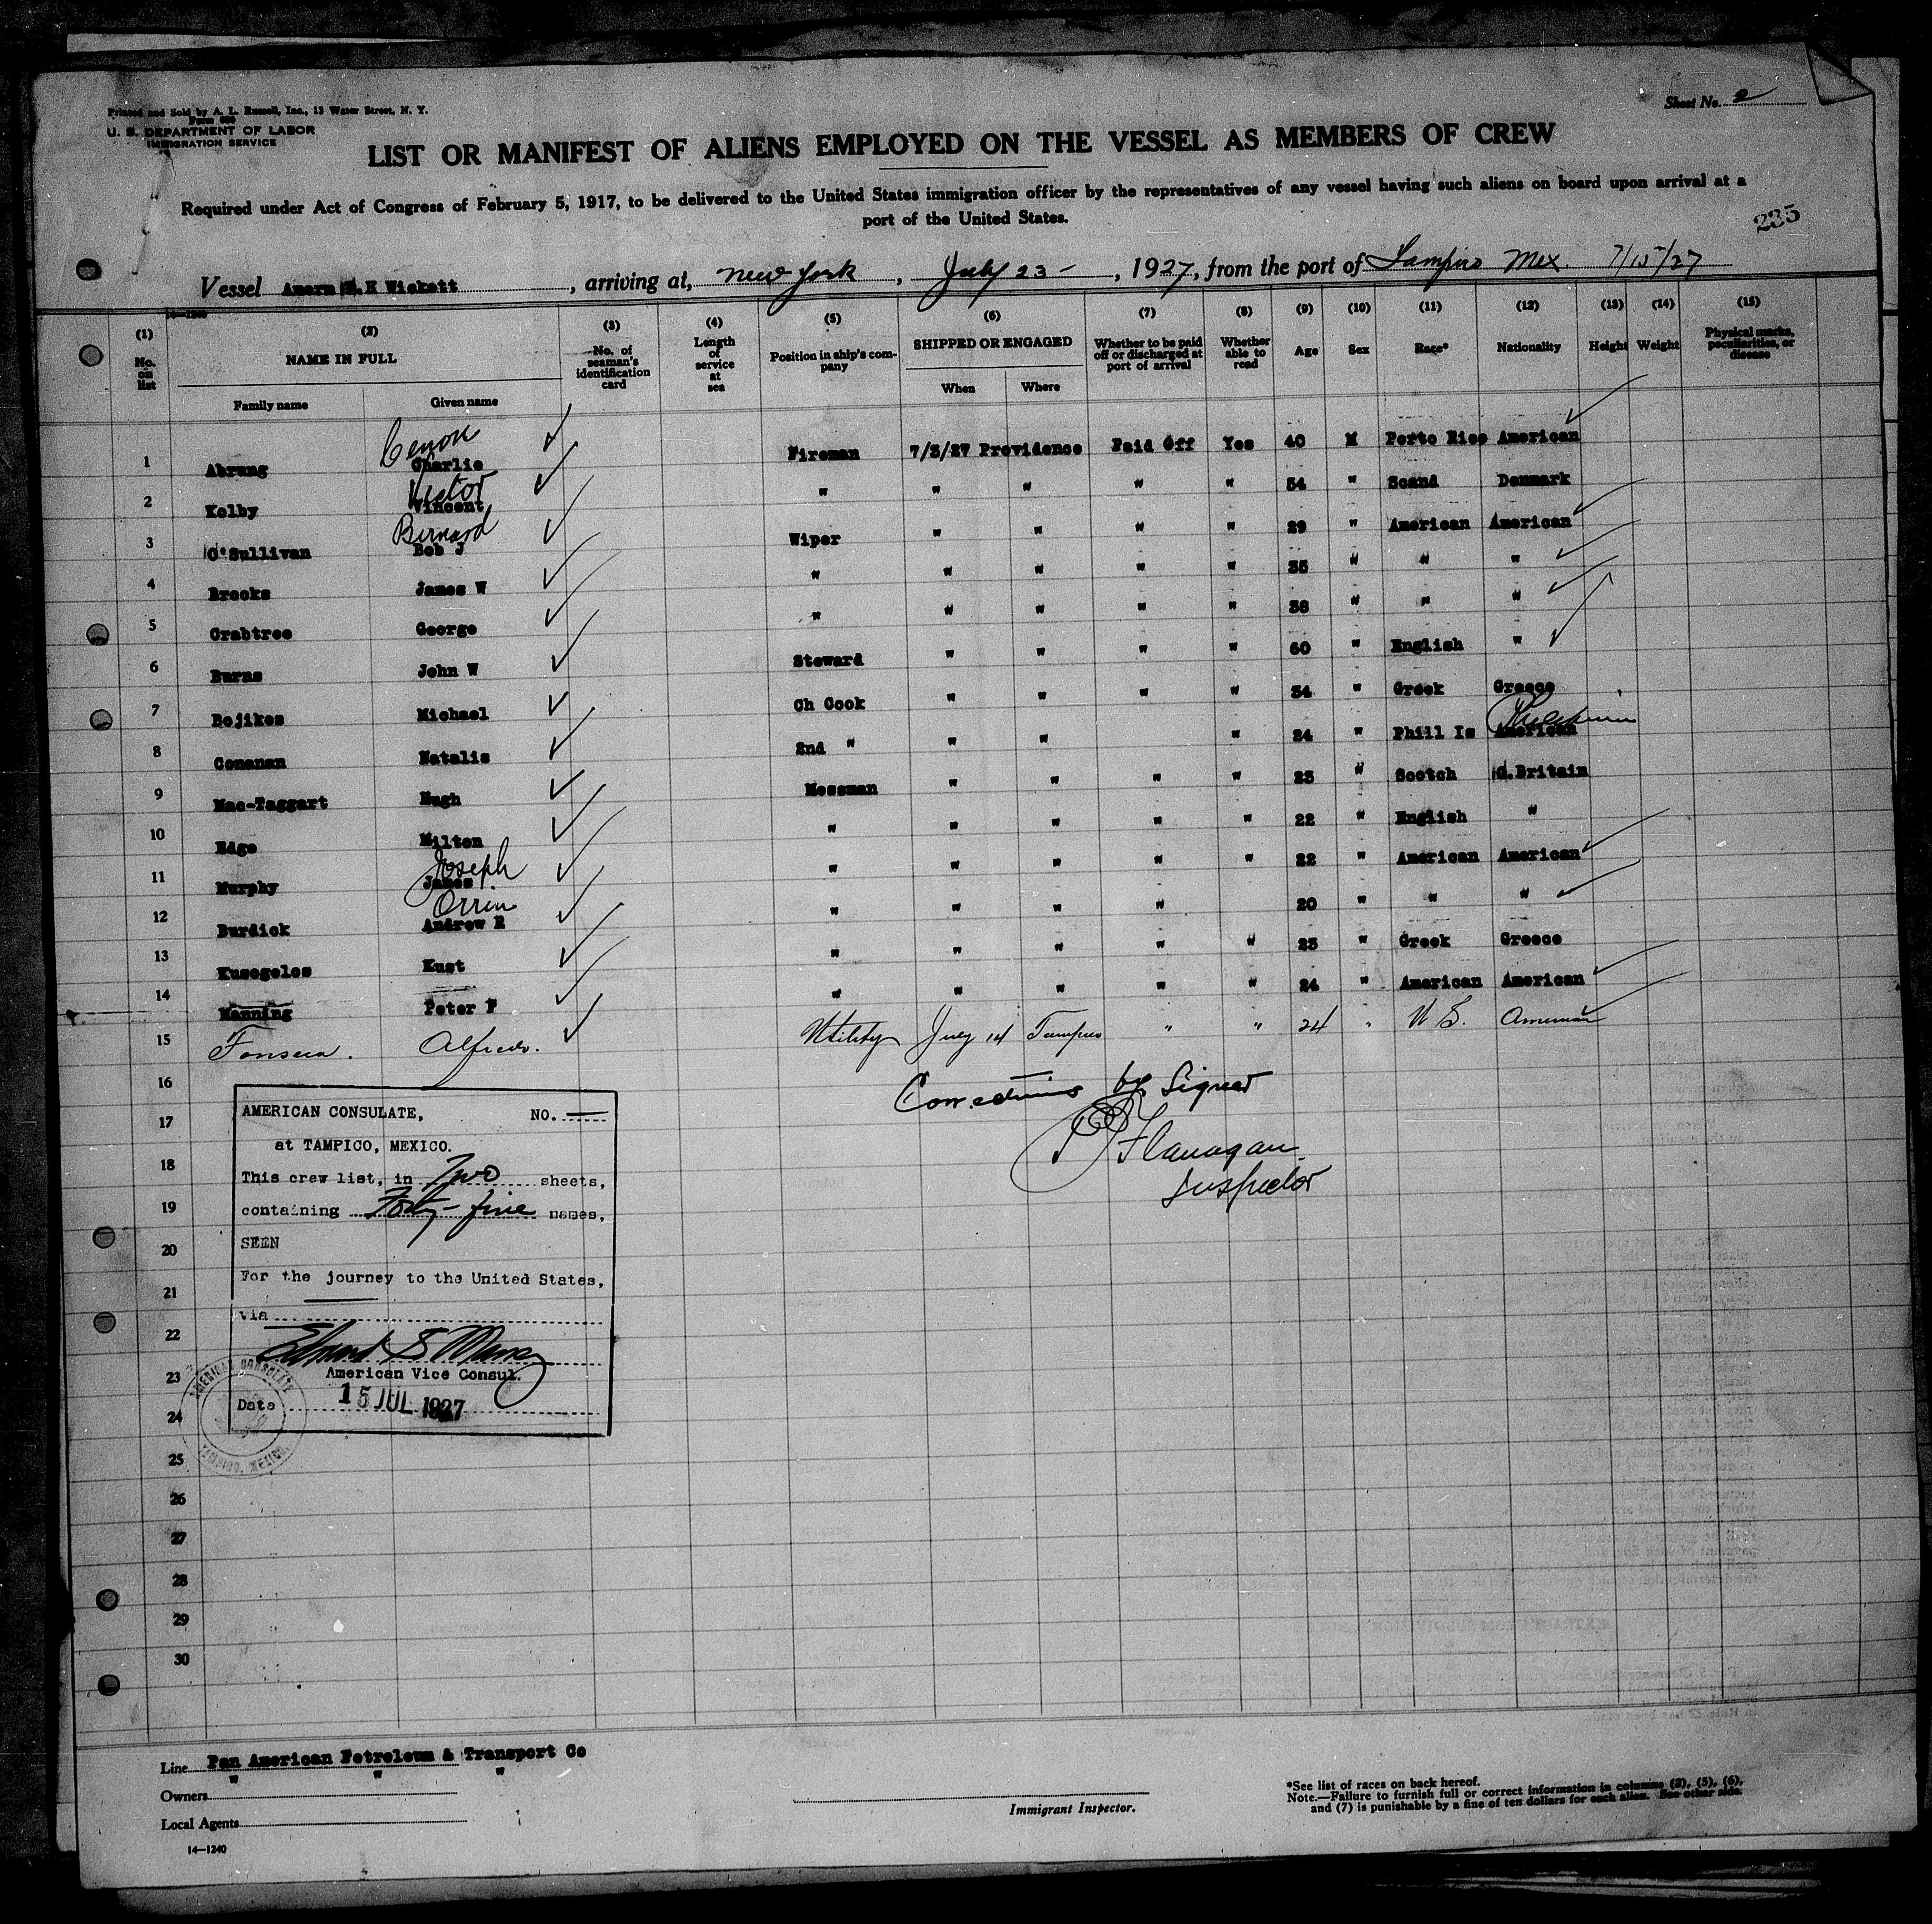 Printed and Sold by A. L. Russell, Inc., 13 Water Street, N. Y.
Form 680
U. S. DEPARTMENT OF LABOR
IMMIGRATION SERVICE
Sheet No. 2
LIST OR MANIFEST OF ALIENS EMPLOYED ON THE VESSEL AS MEMBERS OF CREW
Required under Act of Congress of February 5, 1917, to be delivered to the United States immigration officer by the representatives of any vessel having such aliens on board upon arrival at a
port of the United States.
235
Vessel Amern S.H Wickett, arriving at, New York, July 23 -, 1927, from the port of Tampico Mex. 7/15/27
14—1240
(1) (2) (3) (4) (5) (6) (7) (8) (9) (10) (11) (12) (13) (14) (15)
No. on list NAME IN FULL No. of seaman's identification card Length of service at sea Position in ship's company SHIPPED OR ENGAGED Whether to be paid off or discharged at port of arrival Whether able to read Age Sex Race* Nationality Height Weight Physical marks, peculiarities, or disease
Family name Given name When Where
Cenon
1 Abrung Charlie Fireman 7/3/27 Providence Paid Off Yes 40 M Porto Rico American
Victor
2 Kolby Vincent " " " " " 54 " Scand Denmark
Bernard
3 O'Sullivan Bob J Wiper " " " " 29 " American American
4 Brooks James W " " " " " 35 " " "
5 Crabtree George " " " " " 38 " " "
6 Burns John W Steward " " " " 60 " English "
7 Bejikes Michael Ch Cook " " " " 34 " Greek Greece
Philippine
8 Conanan Natalis 2nd " " " " 24 " Phill Is American
9 Mac-Taggart Hugh Messman " " " " 23 " Scotch G.Britain
10 Edge Milton " " " " " 22 " English "
Joseph
11 Murphy James " " " " " 22 " American American
Orrin
12 Burdick Andrew R " " " " 20 " " "
13 Kusogelos Kust " " " " " 23 " Greek Greece
14 Manning Peter F " " " " " 24 " American American
15 Fonseca. Alfredo. Utility July 14 Tampico " " 24 " U S. American
16
17
18
19
20
21
22
23
24
25
26
27
28
29
30
Corrections by Signed
Flanagan.
Inspector
AMERICAN CONSULATE, NO. —
at TAMPICO, MEXICO.
This crew list, in Two sheets,
containing Forty-five names,
SEEN
For the journey to the United States,
via
American Vice Consul.
Date 15 JUL 1927
AMERICAN CONSULATE
TAMPICO, MEXICO.
Line Pan American Petroleum & Transport Co
Owners " " "
Local Agents
14—1240
Immigrant Inspector.
*See list of races on back hereof.
Note.—Failure to furnish full or correct information in columns (2), (5), (6),
and (7) is punishable by a fine of ten dollars for each alien. See other side.